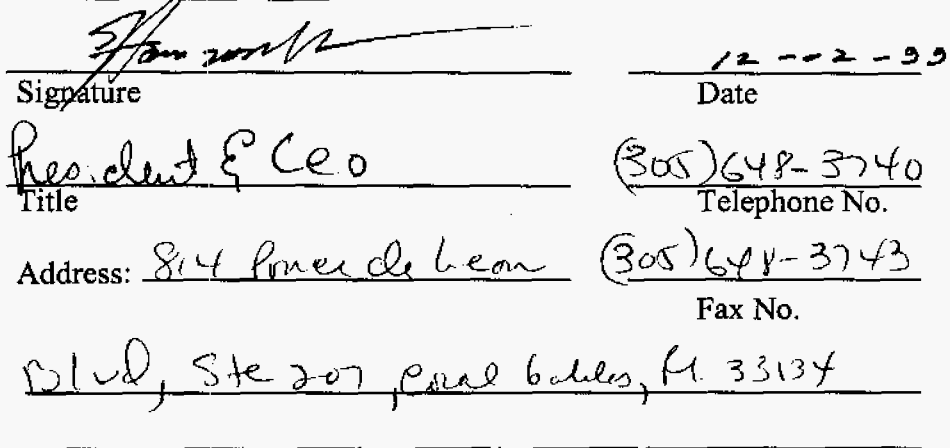 12 - - 2 - 99
Signature Date
President & CEO (305)648-3740
Title Telephone No.
Address: 814 Ponce de Leon (305)648-3743
Fax No.
Blvd, Ste 207, Coral Gables, Fl. 33134